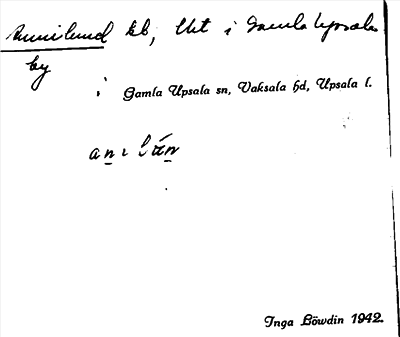 Annilund kb, Utt i Gamla Upsala
by
i Gamla Upsala sn, Vaksala hd, Upsala l.
Inga Löwdin 1942.